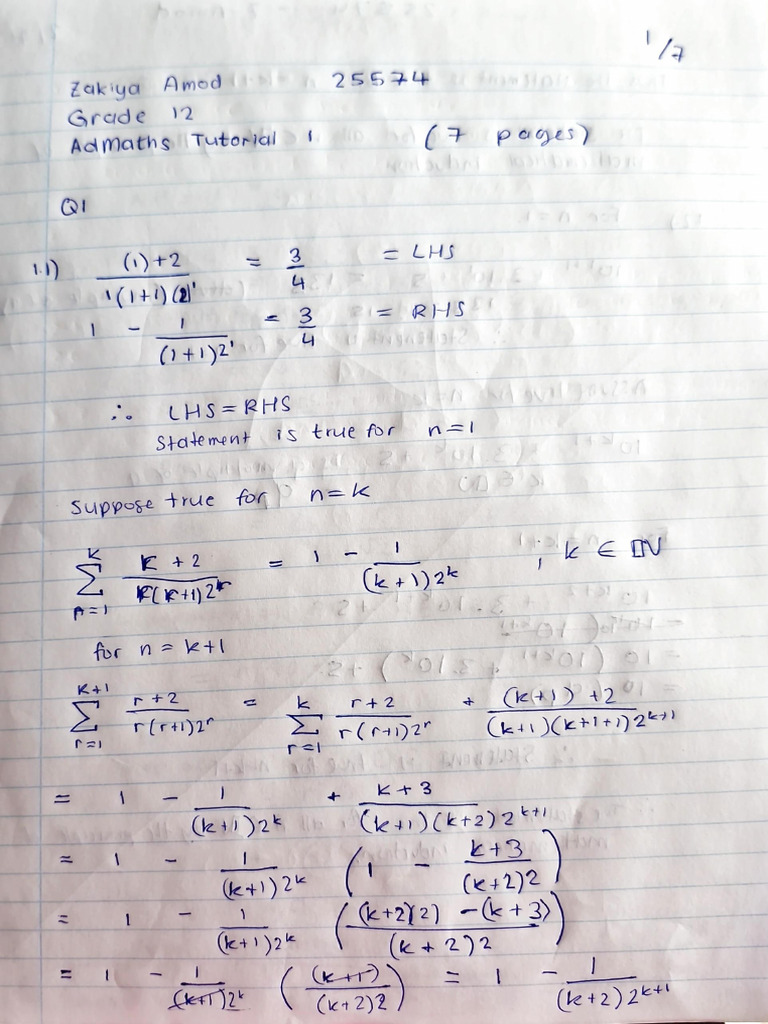 1/7
Zakiya Amod 25574
Grade 12
AdMaths Tutorial 1 (7 pages)
Q1
1.1) (1)+2 / 1(1+1)(2)^1 = 3/4 = LHS
1 - 1/((1+1)2^1) = 3/4 = RHS
∴ LHS = RHS
Statement is true for n=1
Suppose true for n=k
∑_{n=1}^{k} (k+2)/(k(k+1)2^k) = 1 - 1/((k+1)2^k) ; k ∈ ℕ
for n = k+1
∑_{r=1}^{k+1} (r+2)/(r(r+1)2^r) = ∑_{r=1}^{k} (r+2)/(r(r+1)2^r) + ((k+1)+2)/((k+1)(k+1+1)2^{k+1})
= 1 - 1/((k+1)2^k) + (k+3)/((k+1)(k+2)2^{k+1})
= 1 - 1/((k+1)2^k) (1 - (k+3)/((k+2)2))
= 1 - 1/((k+1)2^k) (((k+2)(2) - (k+3))/((k+2)2))
= 1 - 1/((k+1)2^k) ((k+1)/((k+2)2)) = 1 - 1/((k+2)2^{k+1})